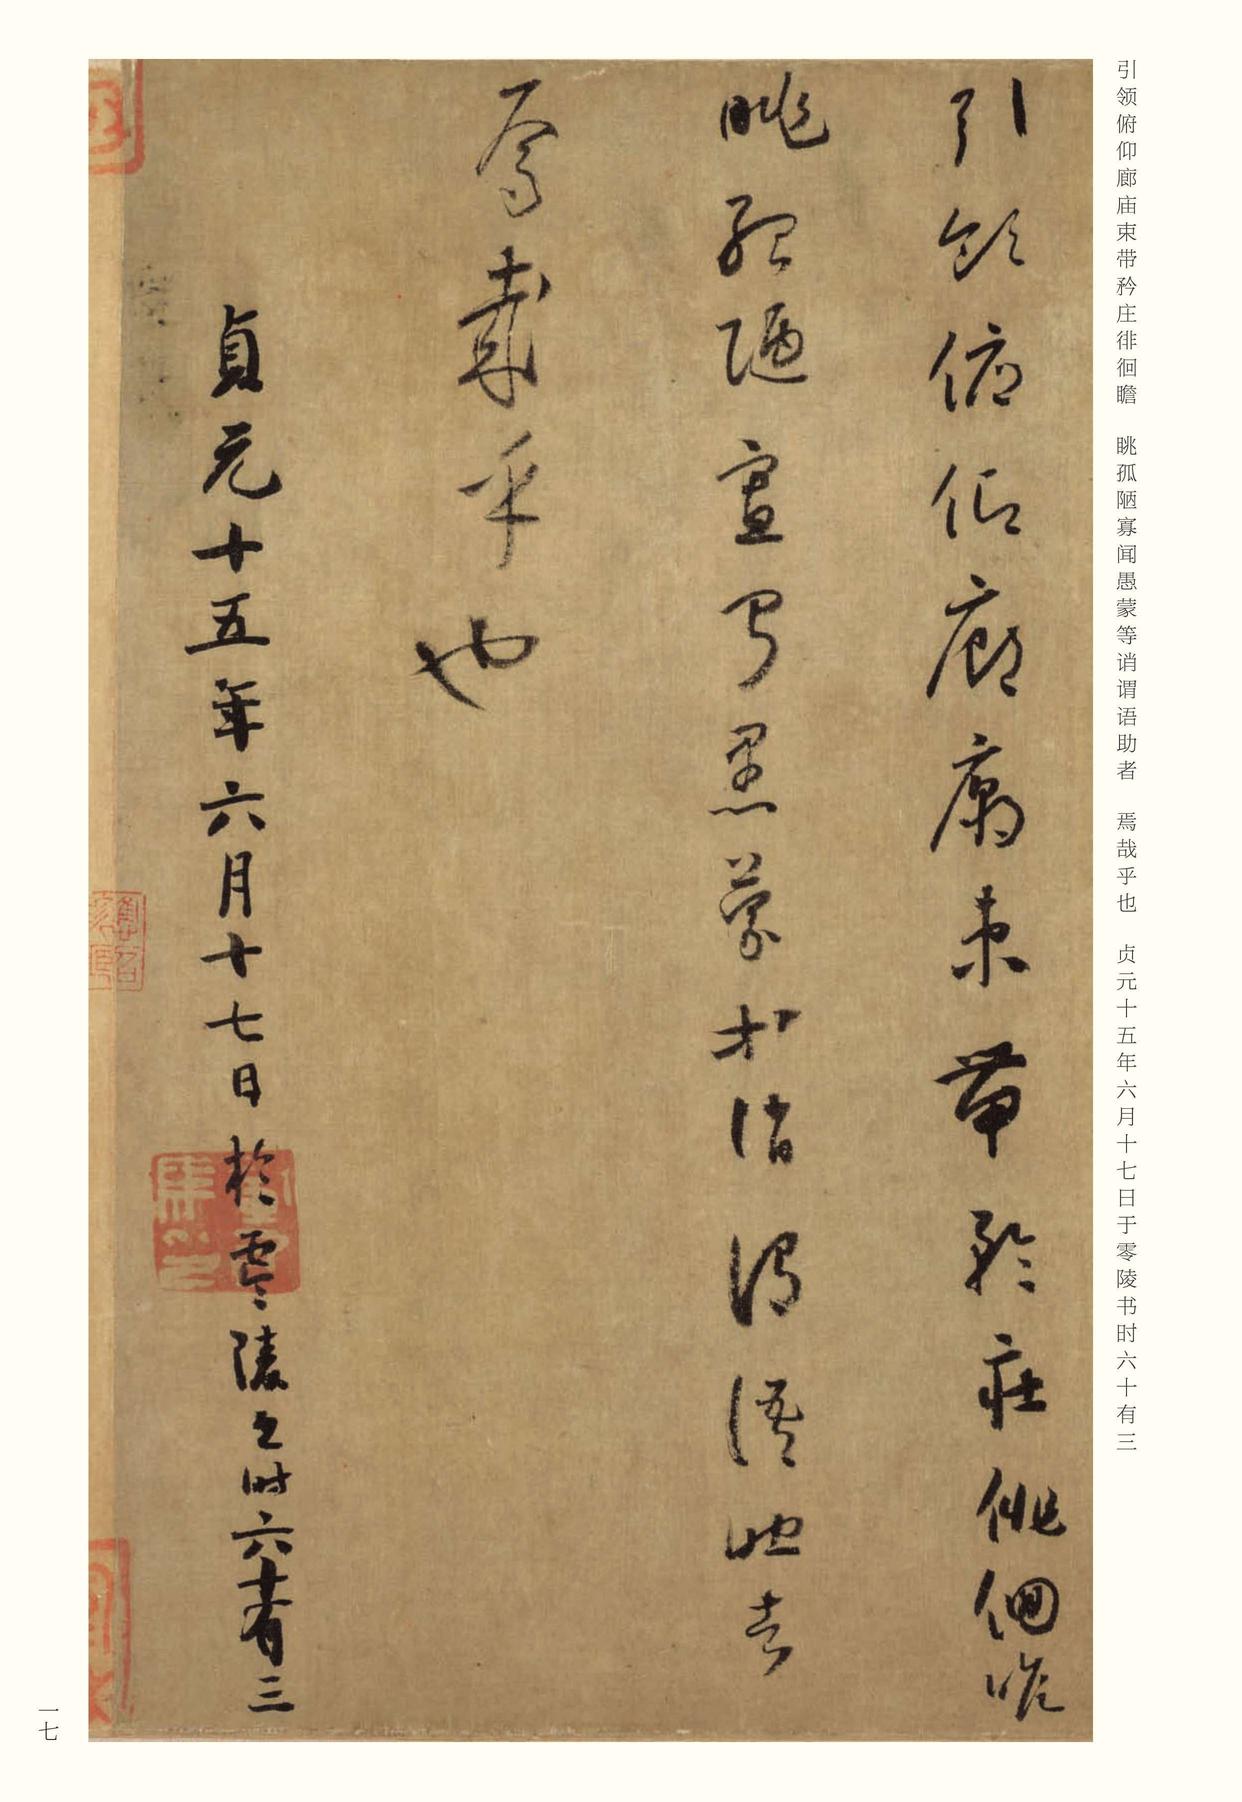 引领俯仰廊庙束带矜庄徘徊瞻 眺孤陋寡闻愚蒙等诮谓语助者 焉哉乎也 贞元十五年六月十七日于零陵书时六十有三
引領俯仰廊廟束帶矜莊徘徊瞻
眺孤陋寡聞愚蒙等誚謂語助者
焉哉乎也
貞元十五年六月十七日於零陵書時六十有三
一七